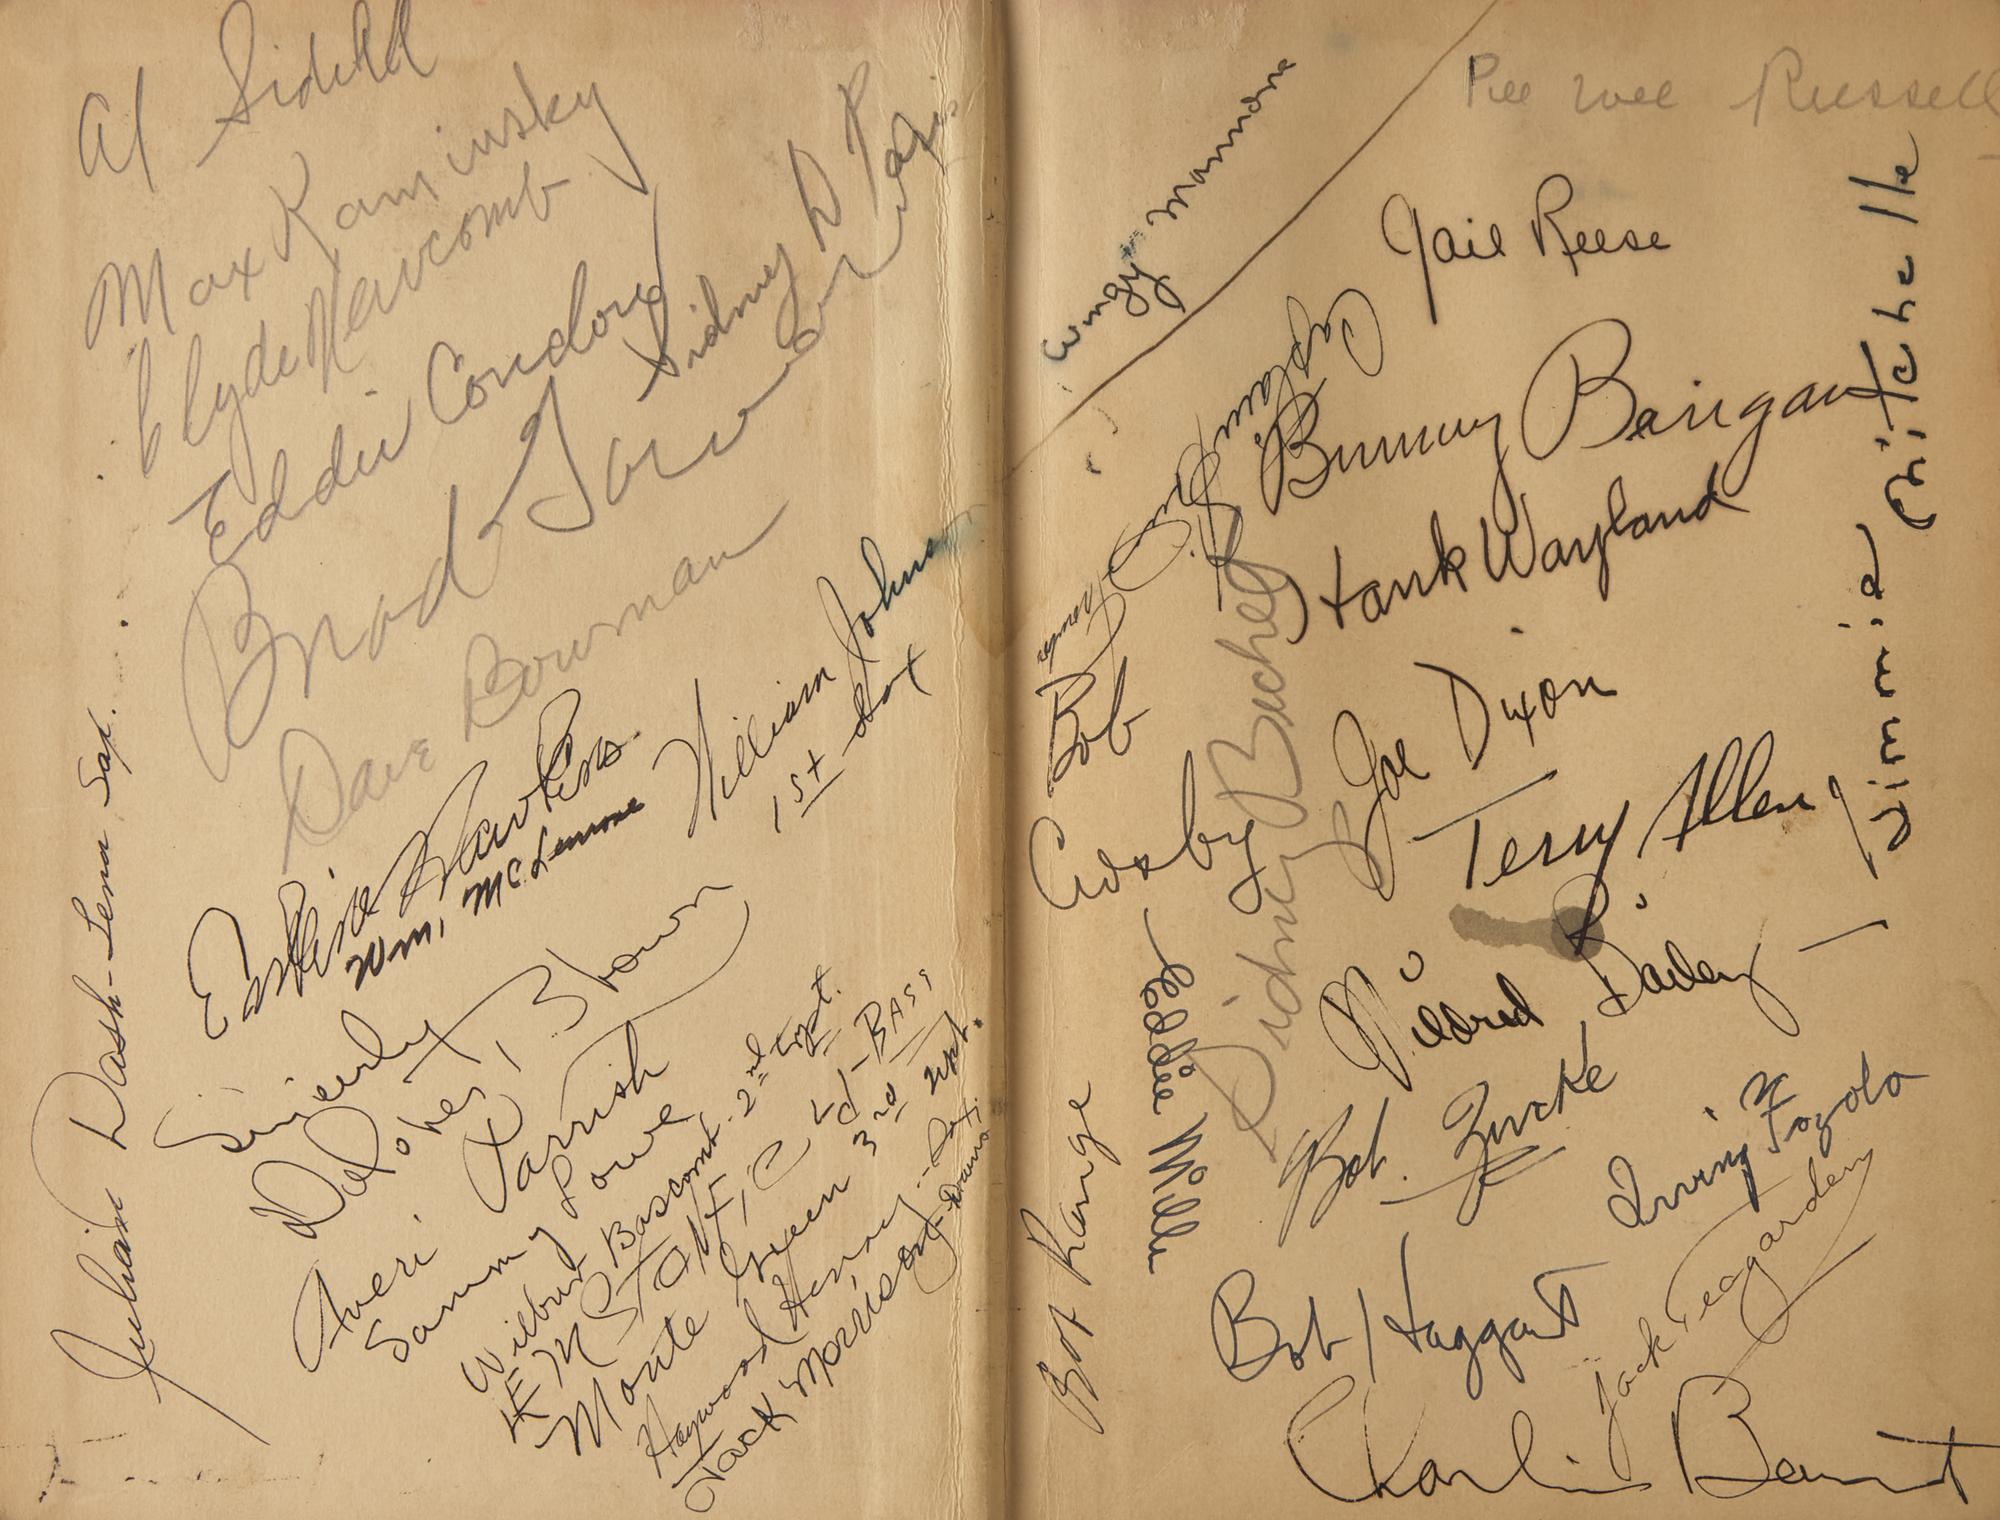 Al Sidell
Max Kaminsky
Clyde Newcomb
Eddie Condon
Sidney D P
Brad Gowans
Dave Bowman
Erskine Hawkins
Wm. McLemore
William Johnson
1st Sax
Julian Dash - Tenor Sax.
Sincerely
Dolores Brown
Averi Parrish
Sammy Lowe
Wilbur Bascomb - 2nd trpt.
LEEMSTONE, C Ld - BASS
Monte Green 3rd
Haywood Henry - Sax
Jack Morrison - Drums
Pee Wee Russell
Wingy Mannone
Gail Reese
Bunny Berigan
Hank Wayland
Joe Dixon
Terry Allen
Jimmie Chitchelle
Bob
Crosby
Sidney
Eddie Miller
Mildred Bailey
Bob Zurke
Irving Fazola
Bob Haggart
Jack Teagarden
Charlie Barnet